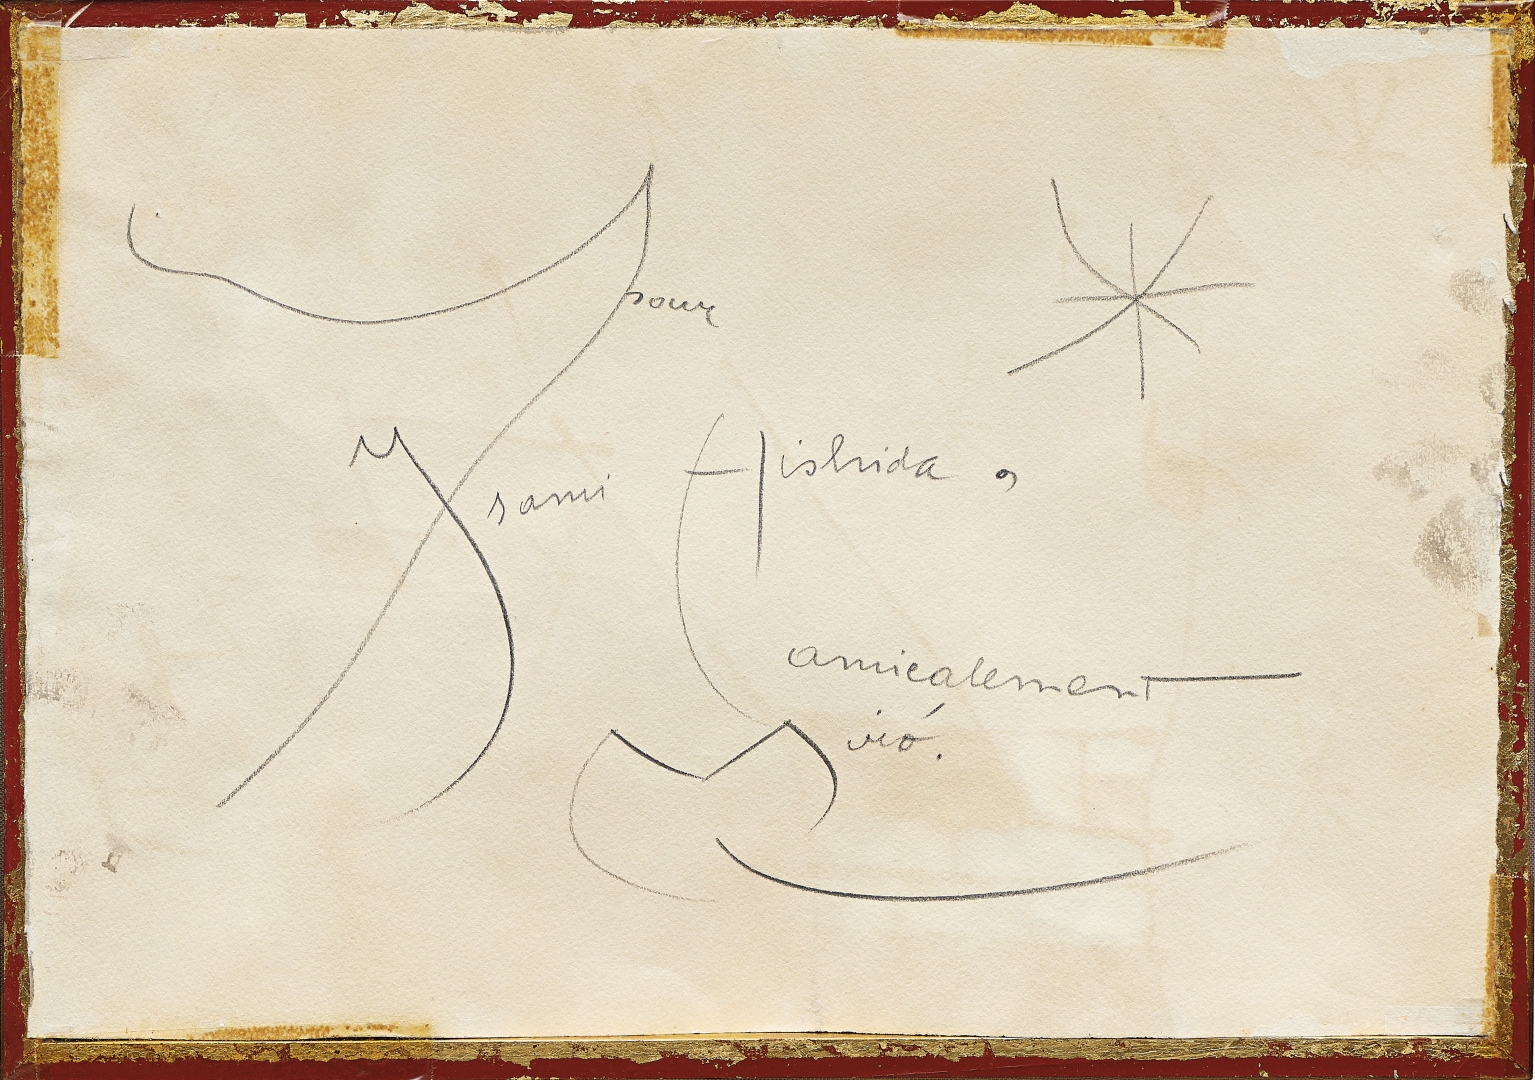 pour
Isami Hishida,
amicalement
Miró.